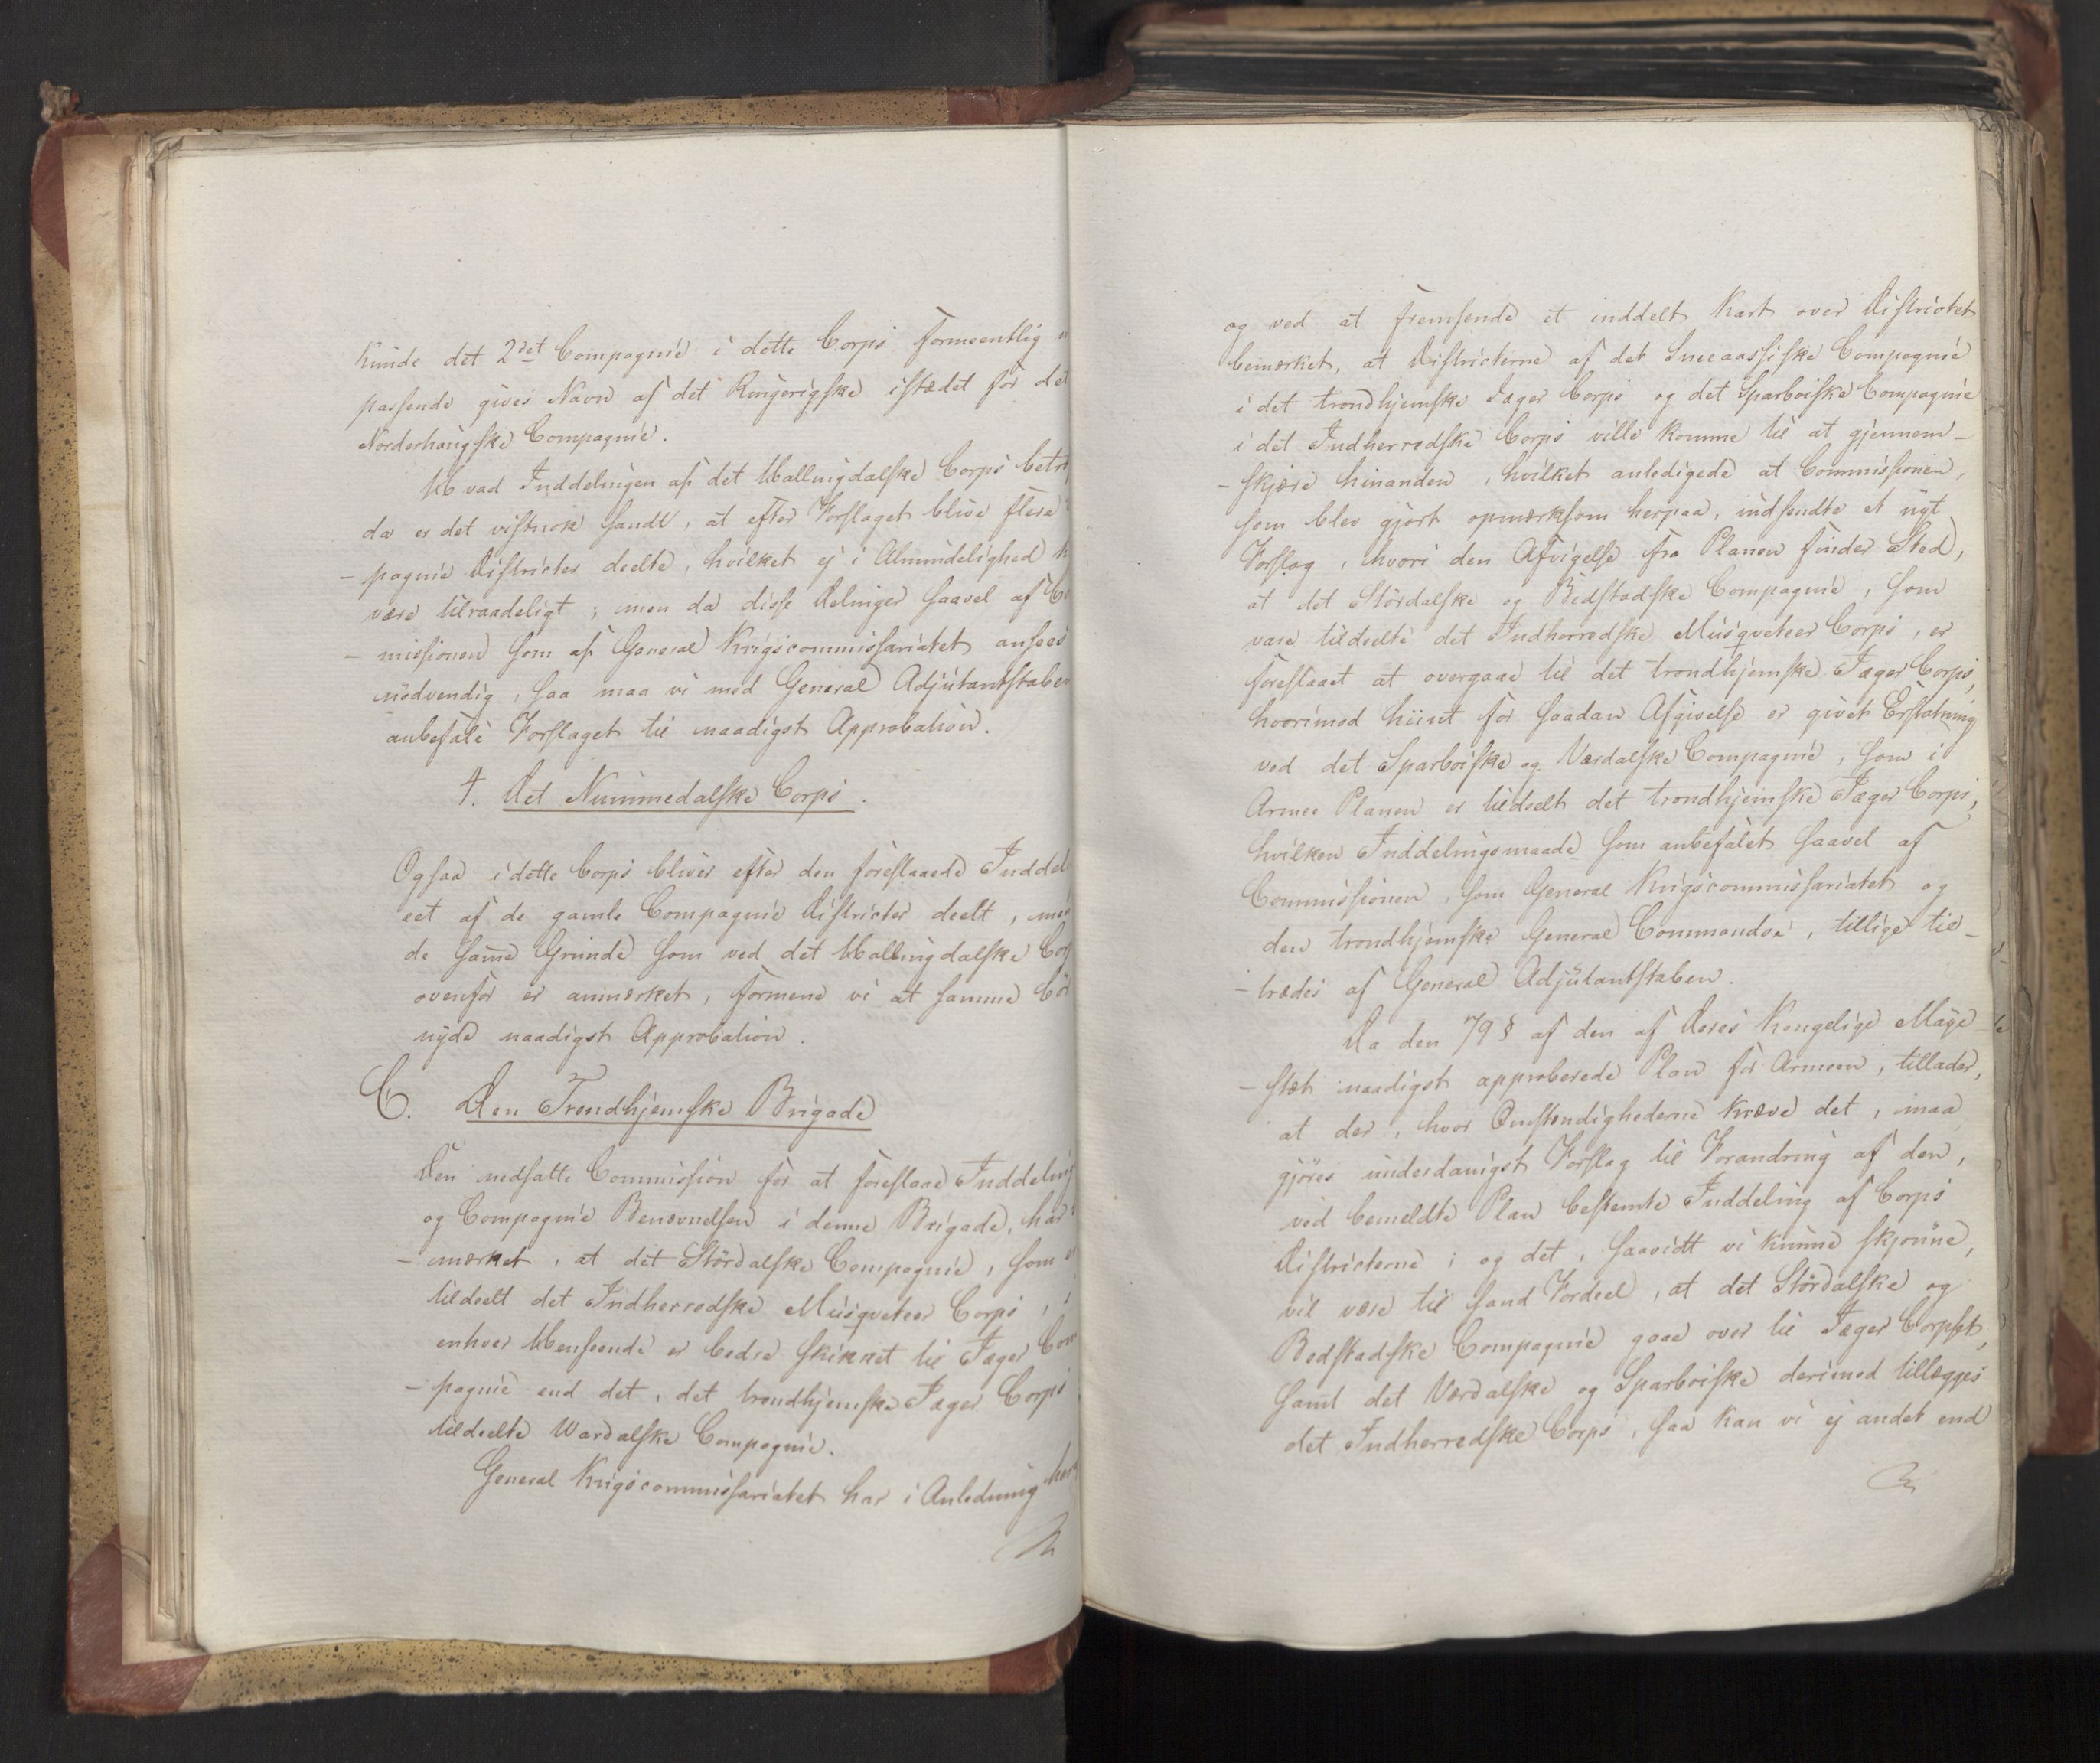 kunde det 2det Compagnie i dette Corps formeentlig
passende gives Navn af det Ringerigske istædet for det
Norderhaugske Compagnie.
Hvad Inddelingen af det Hallingdalske Corps betr
da er det vistnok sandt, at efter Forslaget blive flere
- pagnie Districter deelte, hvilket ej i Almindelighed
være tilraadeligt; men da disse Delinger saavel af Co
- missionen som af General Krigscommissariatet ansees
nödvendig, saa maa vi med General Adjutantstaben
anbefale Forslaget til naadigst Approbation.
4. Det Nummedalske Corps.
Ogsaa i dette Corps bliver efter den foreslaaede Inddel
eet af de gamle Compagnie Districter deelt, men
de samme Grunde som ved det Hallingdalske Cor
ovenfor er anmærket, formene vi at samme bör
nyde naadigst Approbation.
C. Den Trondhjemske Brigade
Den nedsatte Commission for at foreslaae Inddeling
og Compagnie Benævnelsen i denne Brigade, har
- mærket, at det Stördalske Compagnie, som
tildeelt det Indherredske Musqveteer Corps, i
enhver Henseende er bedre skikket til Jæger Com
- pagnie end det, det trondhjemske Jæger Corps
tildeelte Wærdalske Compagnie.
General Krigscommissariatet har i Anledning her
og ved at fremsende et inddelt Kart over Districtet
bemærket, at Districterne af det Sneeaassiske Compagnie
i det trondhjemske Jæger Corps og det Sparboiske Compagnie
i det Indherredske Corps ville komme til at gjennem-
- skjære hinanden, hvilket anledigede at Commissionen,
som blev gjort opmærksom herpaa, indsendte et nyt
Forslag, hvori den Afvigelse fra Planen finder Sted,
at det Stördalske og Bedstadske Compagnie, som
vare tildeelte det Indherredske Musqveteer Corps, er
foreslaaet at overgaae til det trondhjemske Jæger Corps,
hvorimod hiint for saadan Afgivelse er givet Erstatning
ved det Sparboiske og Værdalske Compagnie, som i
Armee Planen er tildeelt det trondhjemske Jæger Corps,
hvilken Inddelingsmaade som anbefalet saavel af
Commissionen, som General Krigscommissariatet og
den trondhjemske General Commandoe, tillige til-
- trædes af General Adjutantstaben.
Da den 79 § af den af Deres Kongelige Maje-
- stæt naadigst approberede Plan for Armeen, tillader,
at der, hvor Omstændighederne kræve det, maa
gjöres underdanigst Forslag til Forandring af den,
ved bemeldte Plan bestemte Inddeling af Corps
Districterne; og det, saavidt vi kunne skjönne,
vil være til sand Fordeel, at det Stördalske og
Bedstadske Compagnie gaae over til Jæger Corpset,
samt det Værdalske og Sparboiske derimod tillægges
det Indherredske Corps, saa kan vi ej andet end